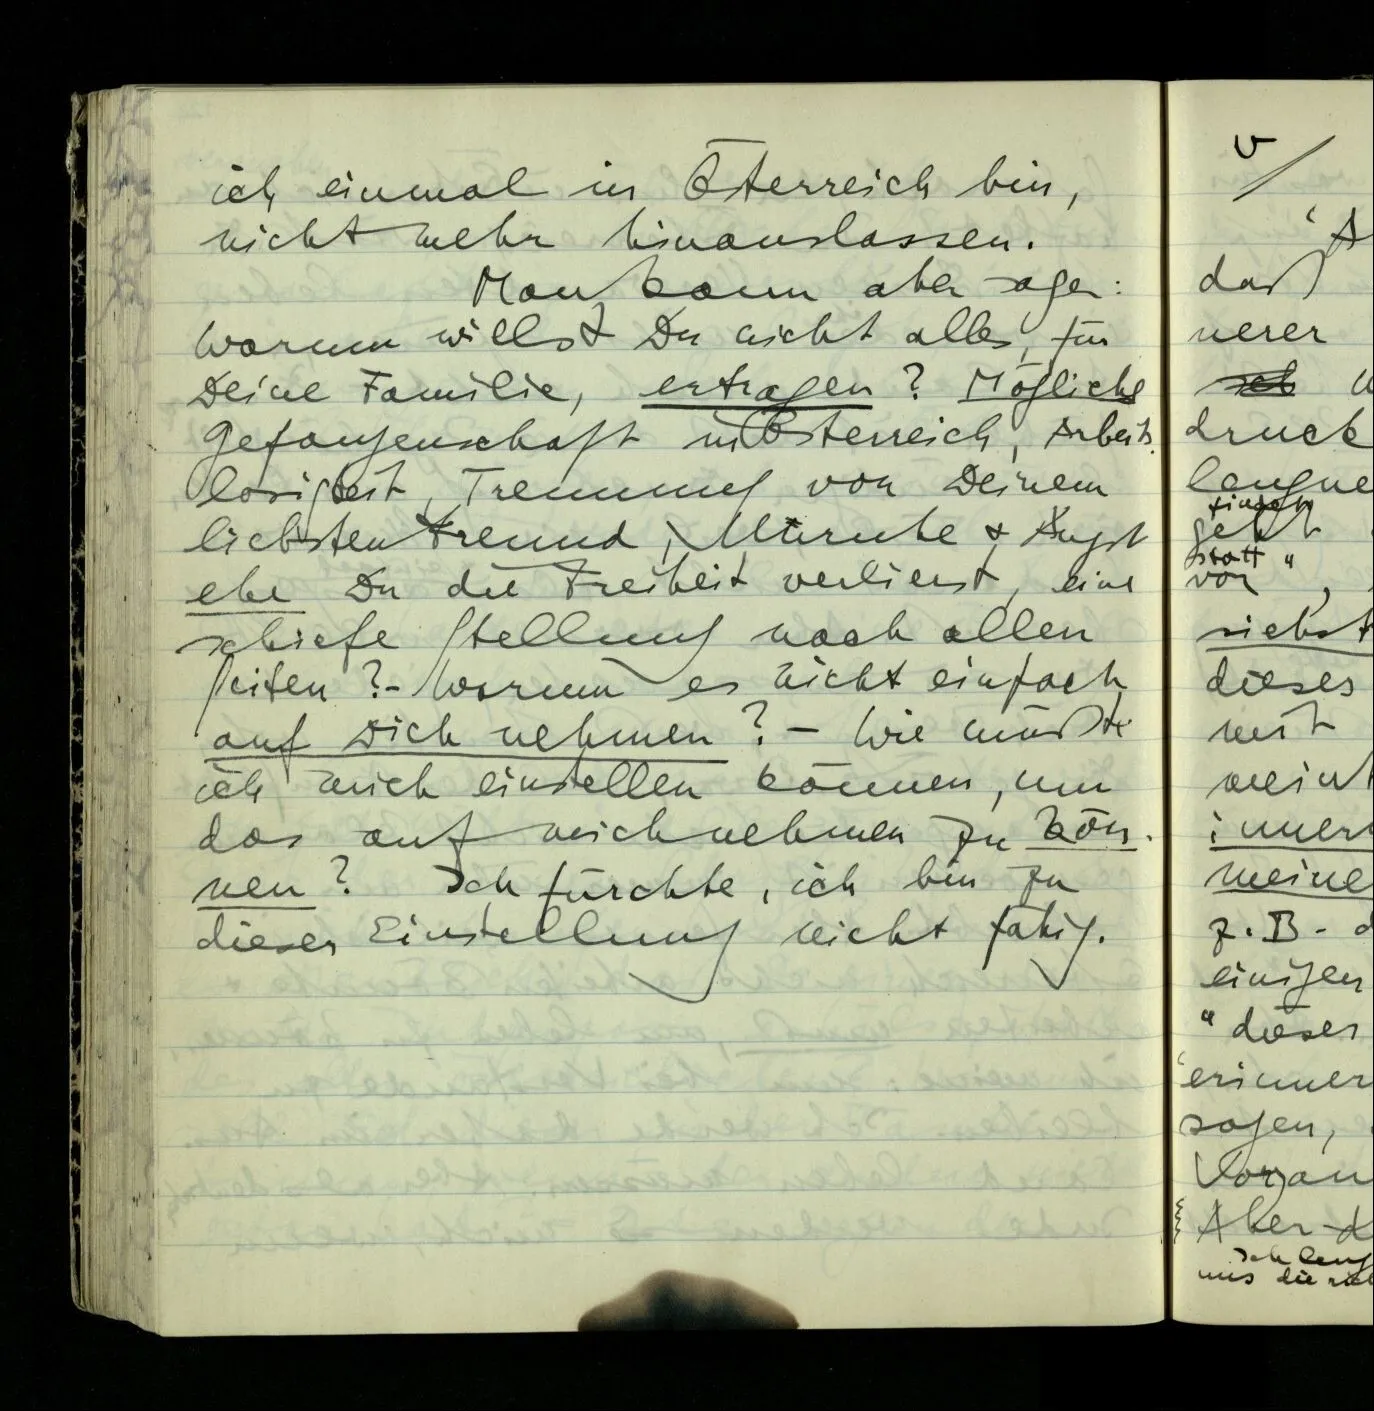 ich einmal in Österreich bin,
nicht mehr hinauslassen.
Man kann aber sagen:
Warum willst Du nicht alles, für
Deine Familie, ertragen? Mögliche
Gefangenschaft in Österreich, Arbeits-
losigkeit, Trennung von Deinem
liebsten Freund, Unruhe & Angst
ehe Du die Freiheit verlierst, eine
schiefe Stellung nach allen
Seiten? – Warum es nicht einfach
auf Dich nehmen? – Wie müßte
ich mich einstellen können, um
das auf mich nehmen zu kön-
nen? Ich fürchte, ich bin zu
dieser Einstellung nicht fähig.
v /
'A
daß
nerer
druck
leugne
geht
statt "
vor ,
siehst
dieses
mit
meint
inner
meine
z.B. d
einigen
" dieses
'erinner
sagen,
Vorgan
Aber d
Ich leug
uns die